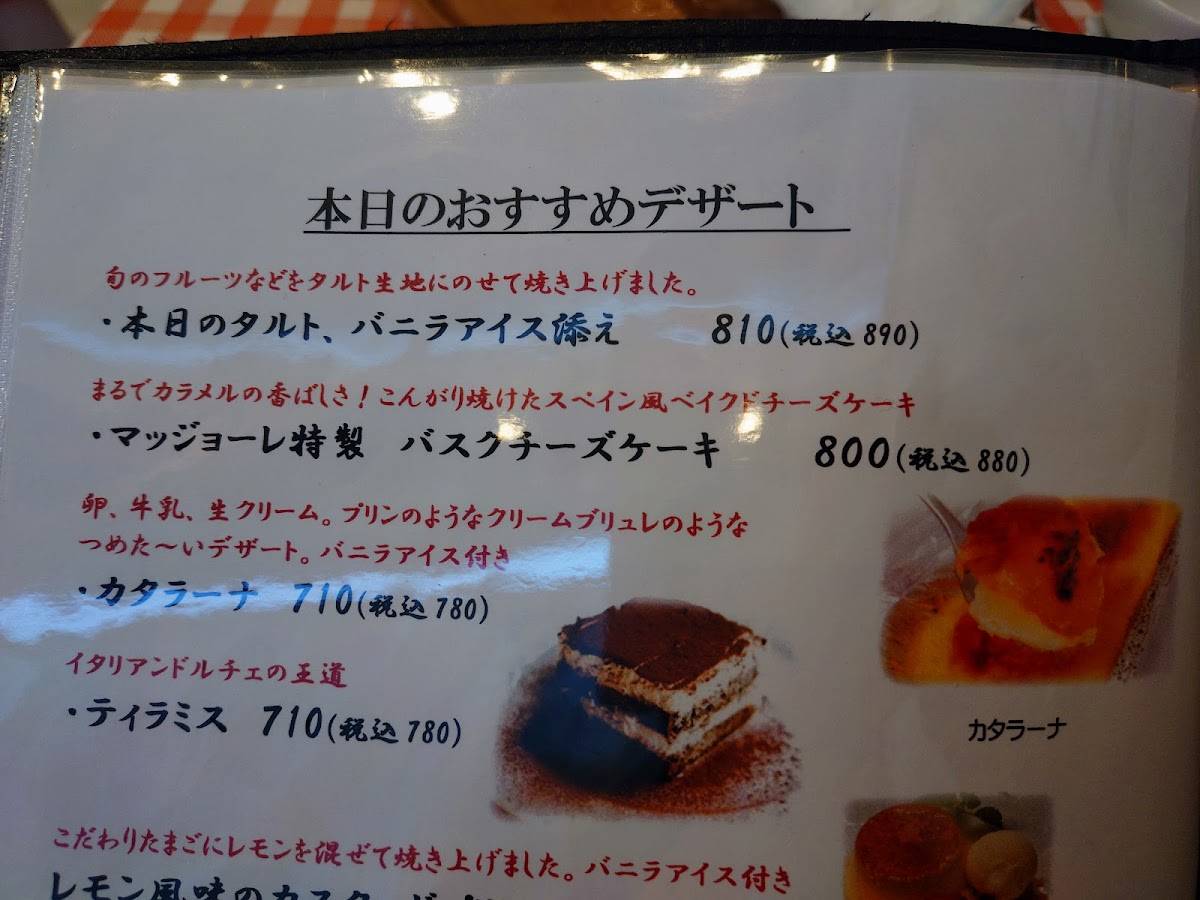 本日のおすすめデザート
旬のフルーツなどをタルト生地にのせて焼き上げました。
・本日のタルト、バニラアイス添え 810(税込890)
まるでカラメルの香ばしさ!こんがり焼けたスペイン風ベイクドチーズケーキ
・マッジョーレ特製 バスクチーズケーキ 800(税込880)
卵、牛乳、生クリーム。プリンのようなクリームブリュレのような
つめた〜いデザート。バニラアイス付き
・カタラーナ 710(税込780)
カタラーナ
イタリアンドルチェの王道
・ティラミス 710(税込780)
こだわりたまごにレモンを混ぜて焼き上げました。バニラアイス付き
レモン風味のカスタード